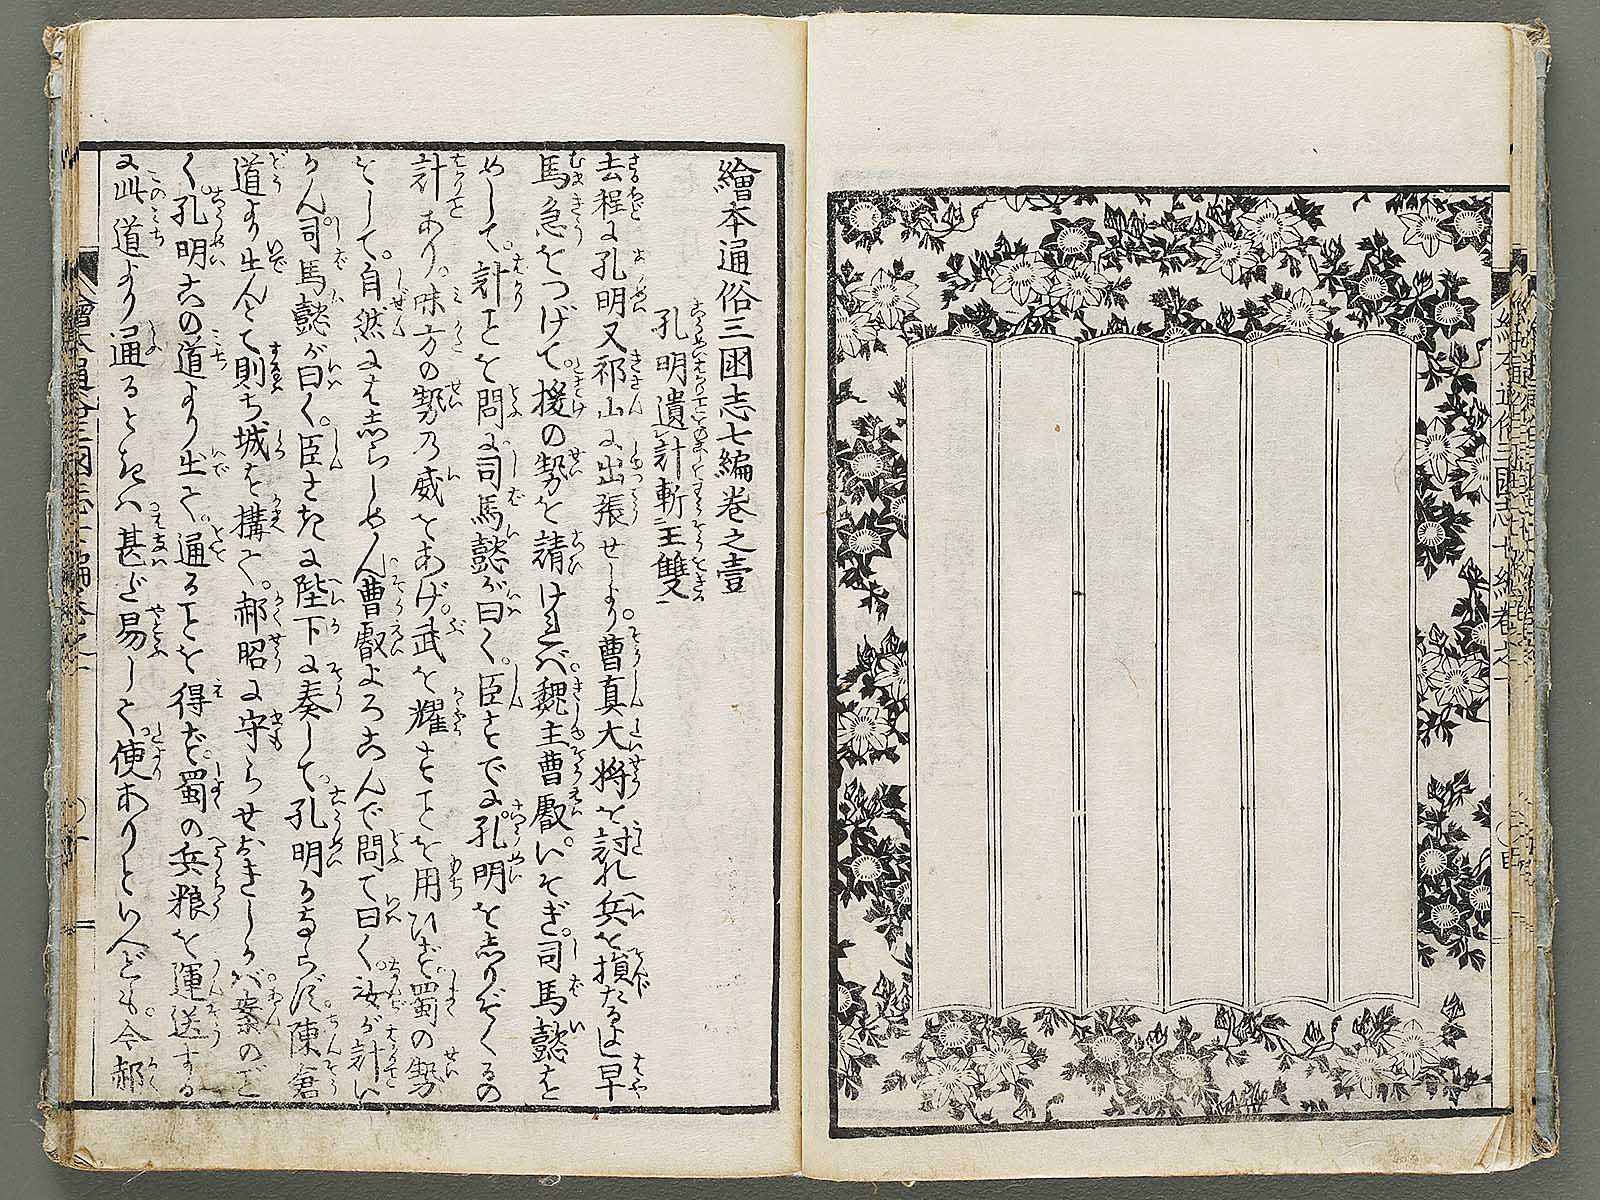 繪本通俗三國志七編巻之壹
繪本通俗三国志七編巻之壹
孔明遺計斬王雙
去程に孔明又祁山に出張せしより。曹真大将を討れ兵を損たるよし早
馬急をつげて。援の勢を請ければ。魏主曹叡。いそぎ。司馬懿を
めして。計ことを問に司馬懿が曰く。臣すでに。孔明をしりぞくるの
計あり。味方の勢の威をあげ。武を耀すことを用ひず。蜀の勢
をして。自然にはしらしめん。曹叡よろこんで問て曰く。汝が計い
かん。司馬懿が曰く。臣さきに陛下に奏して。孔明かならず。陳倉
道より出んとて則ち城を構て。郝昭に守らせおきしが。案のごと
く孔明この道より出て。通ることを得ず。蜀の兵粮を運送する
に此道より通るときハ。甚だ易しく。便ありといへども。今郝
繪本通俗三國志七編巻之一